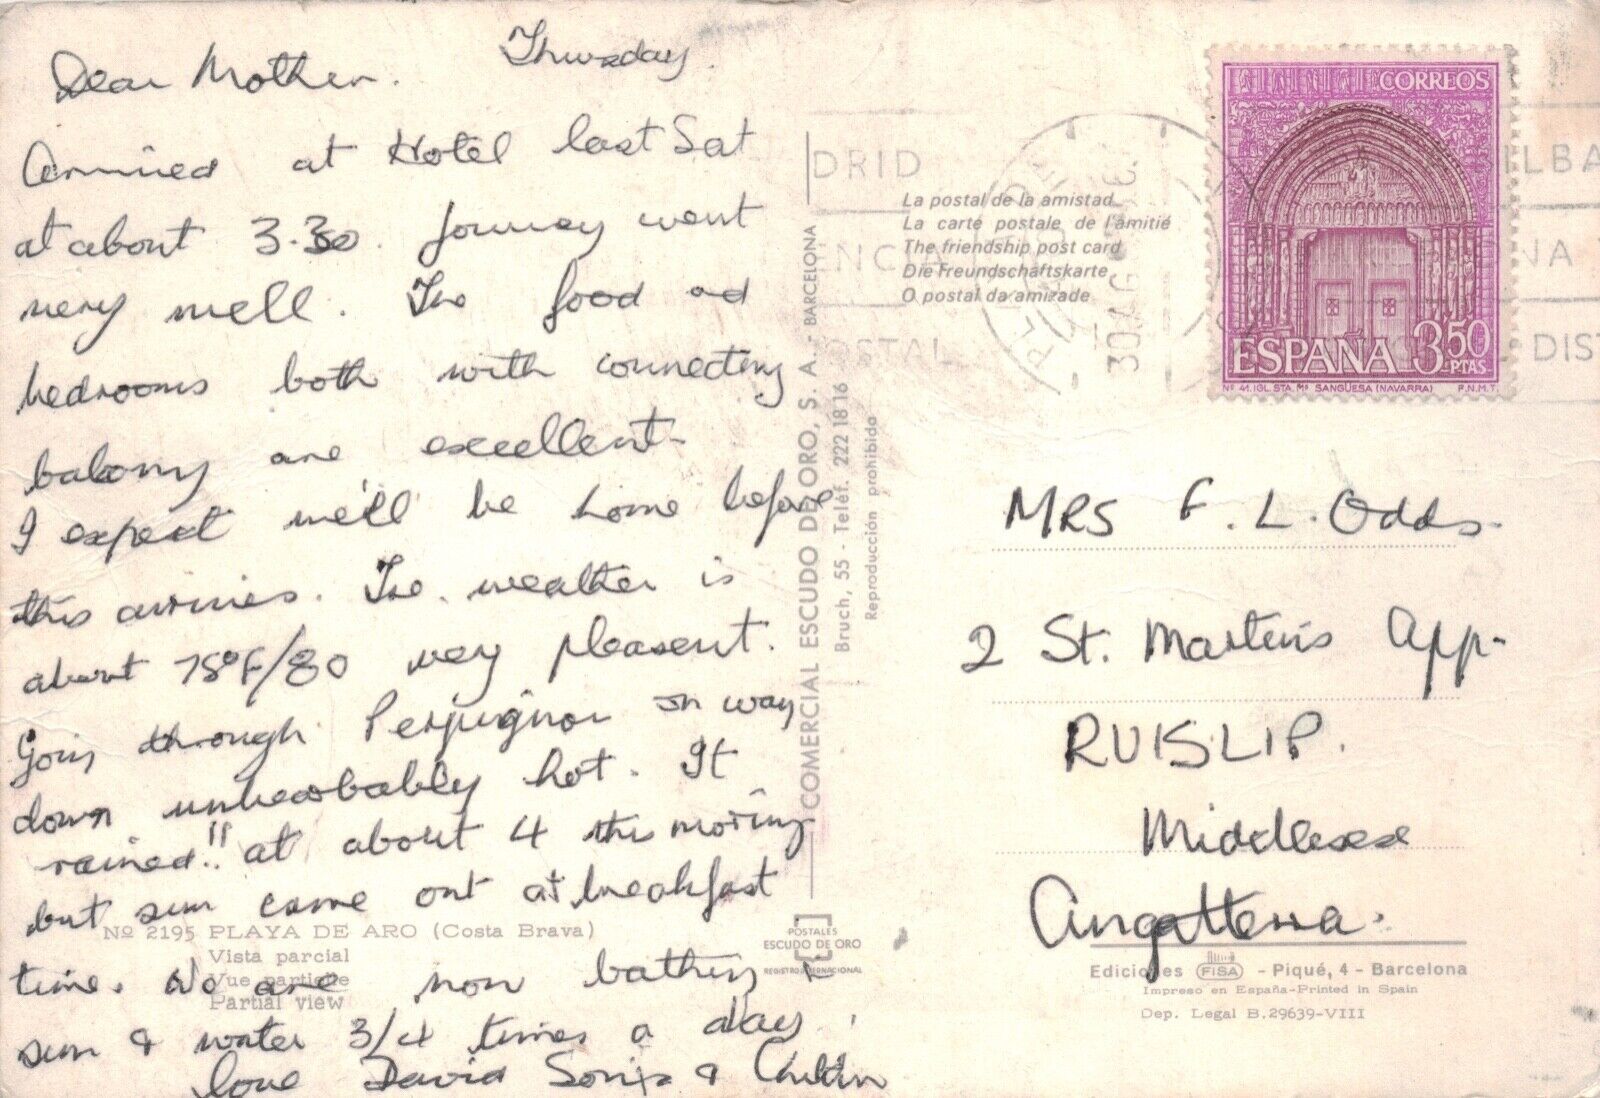 Thursday.
Dear Mother.
Arrived at Hotel last Sat
at about 3.30. Journey went
very well. The food ad
bedrooms both with connecting
balcony are excellent-
I expect we'll be home before
this arrives. The weather is
about 78°F/80 very pleasent.
Going through Perpignon on way
down unbearbably hot. It
rained!! at about 4 this morning
but sun came out at breakfast
time. We are now bathing in
sun & water 3/4 times a day.
love David Sonia & Children
Nº 2195 PLAYA DE ARO (Costa Brava)
Vista parcial
Vue partielle
Partial view
COMERCIAL ESCUDO DE ORO, S. A. - BARCELONA
Bruch, 55 - Teléf. 222 18 16
Reproducción prohibida
POSTALES
ESCUDO DE ORO
REGISTRO INTERNACIONAL
La postal de la amistad
La carte postale de l'amitié
The friendship post card
Die Freundschaftskarte
O postal da amizade
DRID
NCIA
OSTAL
ILBA
NA
DIST
30 AG
CORREOS
ESPAÑA 3'50 PTAS
Nº 41. IGL. STA. Mª SANGÜESA (NAVARRA) F.N.M.T.
MRS F. L. Odds.
2 St. Martins App-
RUISLIP.
Middlesex
Angatterra.
Ediciones FISA - Piqué, 4 - Barcelona
Impreso en España-Printed in Spain
Dep. Legal B. 29639-VIII